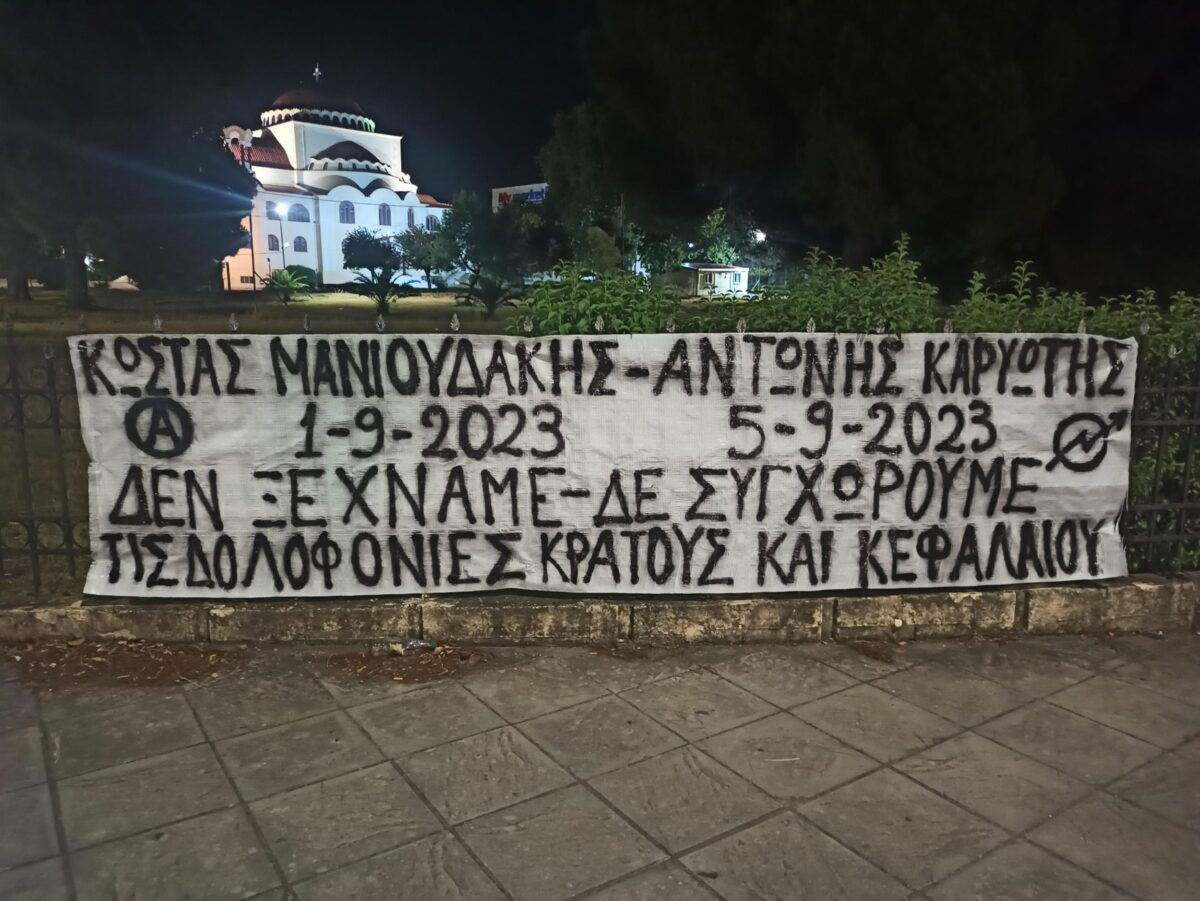 My market
ΚΩΣΤΑΣ ΜΑΝΙΟΥΔΑΚΗΣ-ΑΝΤΩΝΗΣ ΚΑΡΥΩΤΗΣ
Ⓐ 1-9-2023 5-9-2023
ΔΕΝ ΞΕΧΝΑΜΕ-ΔΕ ΣΥΓΧΩΡΟΥΜΕ
ΤΙΣ ΔΟΛΟΦΟΝΙΕΣ ΚΡΑΤΟΥΣ ΚΑΙ ΚΕΦΑΛΑΙΟΥ